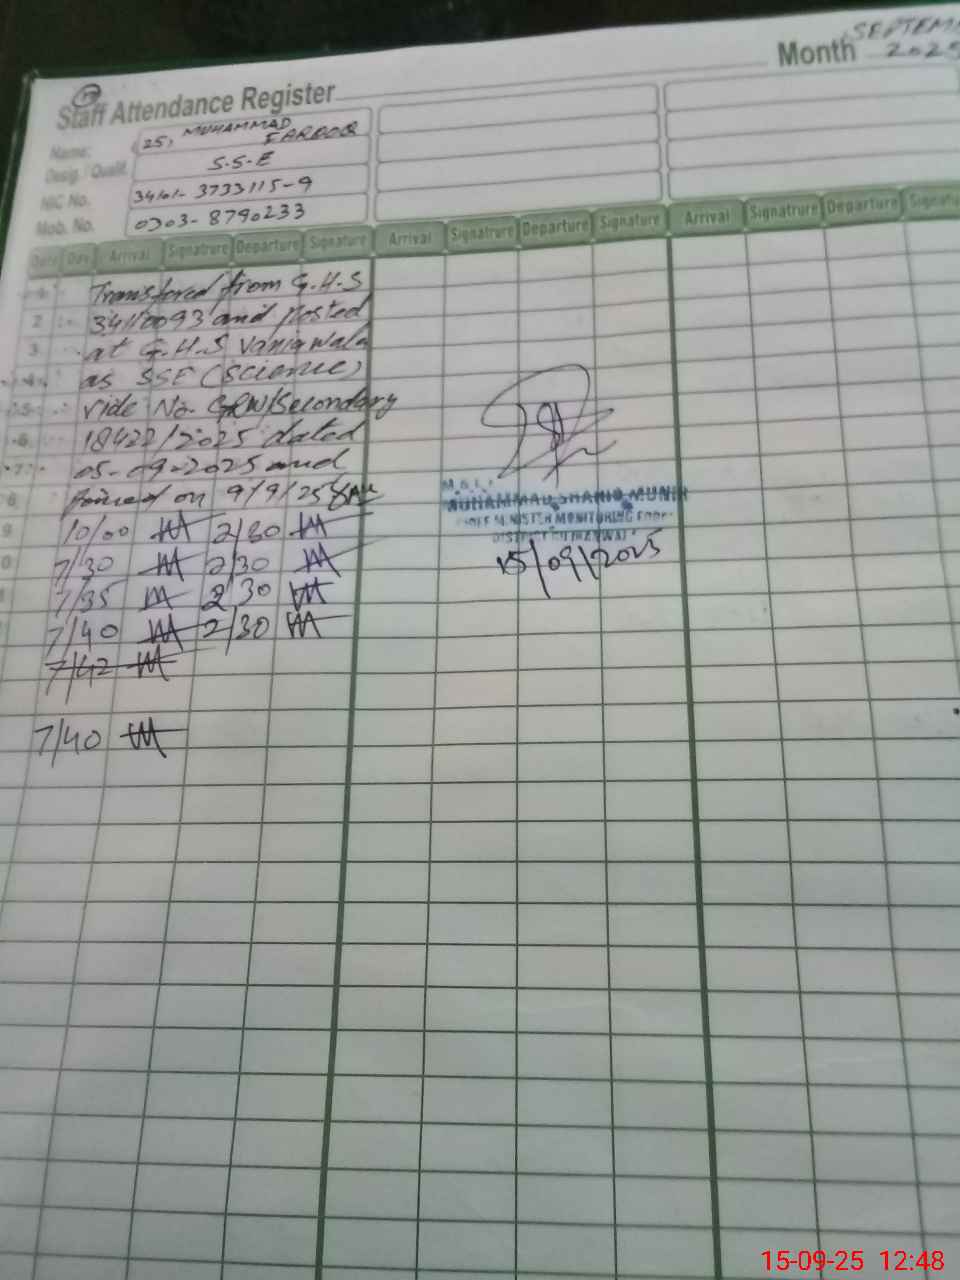 SEPTEM
Month 2025
Staff Attendance Register
Name: 25, MUHAMMAD FAROOQ
Desig. / Qualif. S.S.E
NIC No. 34101-3733115-9
Mob. No. 0303-8790233
Date Day Arrival Signatrure Departure Signature Arrival Signatrure Departure Signature Arrival Signatrure Departure Signatu
Transfered from G.H.S
2 34110093 and posted
3 at G.H.S Vaniawala
4 as SSE (Science)
5 vide No. GRW/Secondary
6 18422/2025 dated
7 05-09-2025 and
8 joined on 9/9/25
9 10/00 2/30
0 7/30 2/30
7/35 2/30
7/40 2/30
7/42
7/40
MUHAMMAD SHAHID MUNIR
CHIEF MINISTER MONITORING FORCE
15/09/2025
15-09-25 12:48